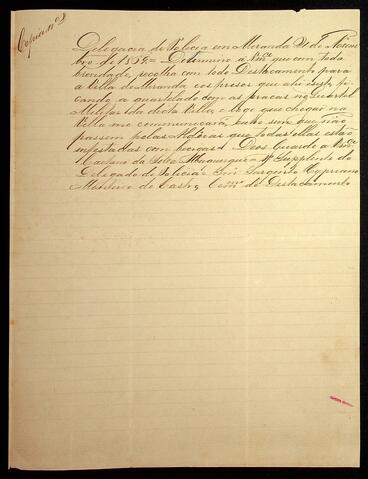 Copia nº 2
Delegacia de Policia em Miranda 21 de Novem
bro de 1859 = Determino a Vmce que com toda
brevidade, recolha com todo Destacamento para
a Villa de Miranda cos presos que ahi fi
cando, a quartelado com as pracas no Quartel
Militar da dicta Villa, e logo que chegar na
Villa me communicará, outro sim que não
passem pelas Aldeas que todas ellas estão
infestadas com bexigas. Deos Guarde a Vmce
Caetano da Silva Albuquerque 1º Supplente do
Delegado de Policia = Snr Sargento Cypriano
de Castro, Comme do Destacamento